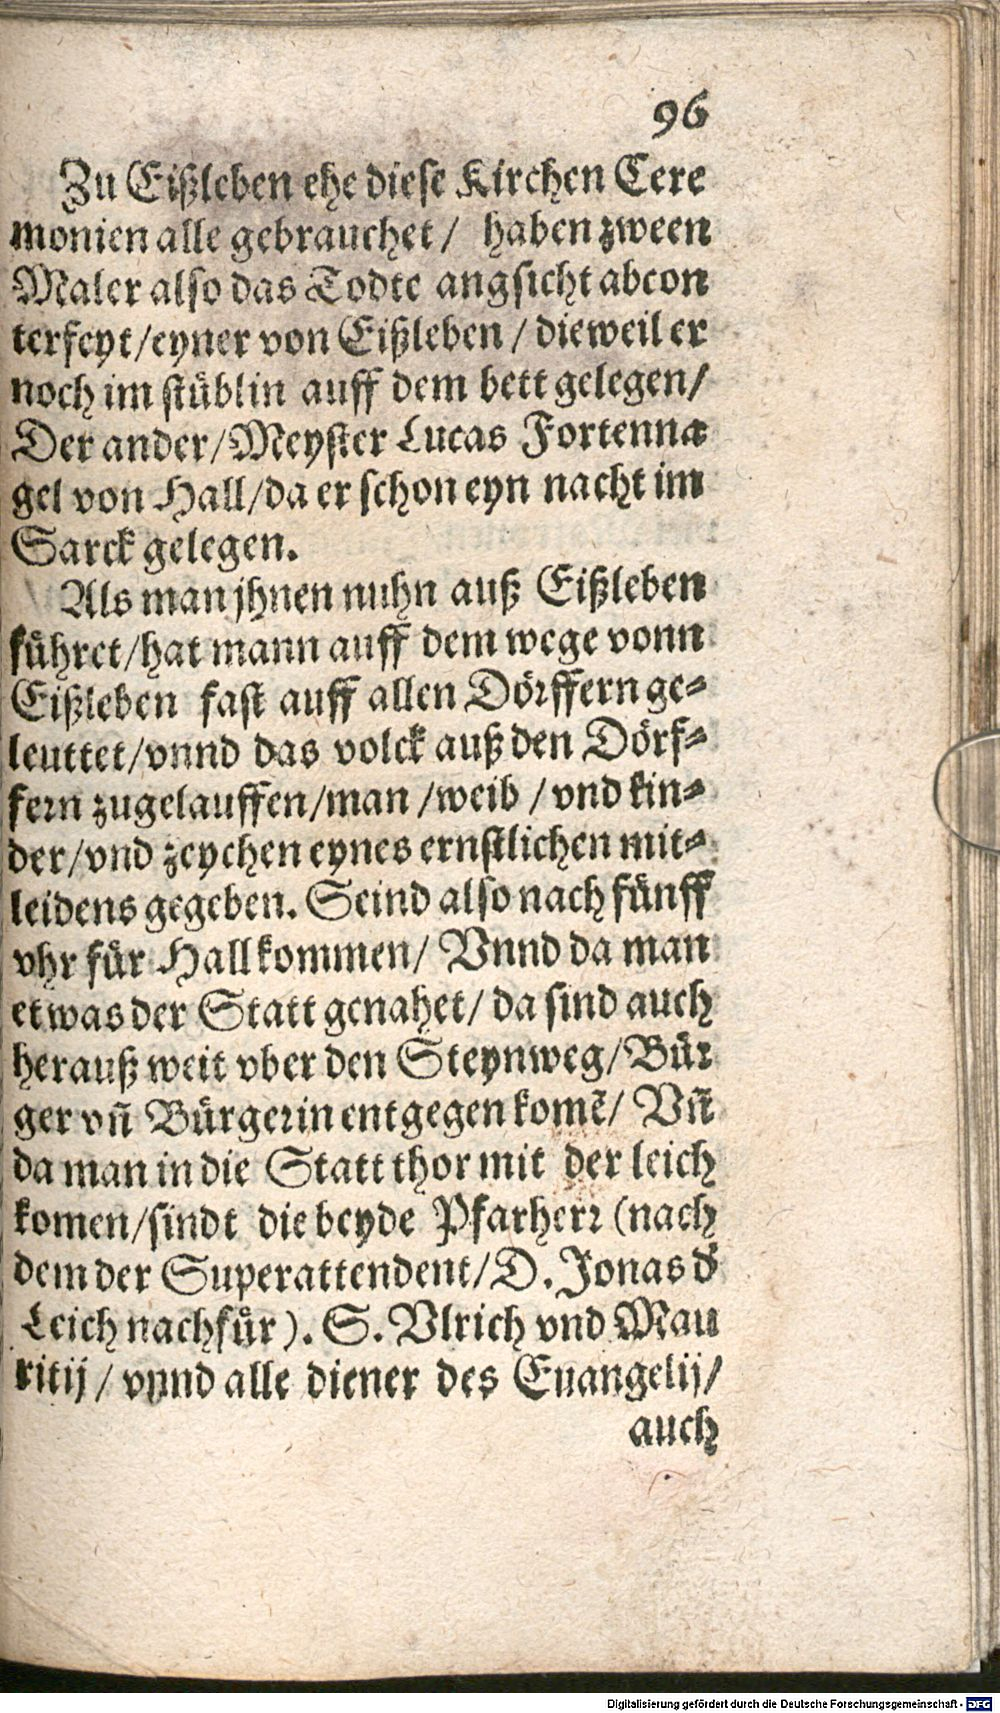 96
Zu Eißleben ehe diese Kirchen Cere
monien alle gebrauchet / haben zween
Maler also das Todte angsicht abcon
terfeyt/eyner von Eißleben / dieweil er
noch im stüblin auff dem bett gelegen/
Der ander/Meyster Lucas Fortenna
gel von Hall/da er schon eyn nacht im
Sarck gelegen.
Als man jhnen nuhn auß Eißleben
führet/hat mann auff dem wege vonn
Eißleben fast auff allen Dörffern ge-
leuttet/vnnd das volck auß den Dörf-
fern zugelauffen/man /weib / vnd kin-
der/vnd zeychen eynes ernstlichen mit-
leidens gegeben. Seind also nach fünff
vhr für Hall kommen/ Vnnd da man
etwas der Statt genahet/ da sind auch
herauß weit vber den Steynweg/Bür
ger vñ Bürgerin entgegen komẽ/ Vñ
da man in die Statt thor mit der leich
komen/sindt die beyde Pfarherr (nach
dem der Superattendent/D. Jonas d̕
Leich nachfür). S. Vlrich vnd Mau
ritij / vnnd alle diener des Euangelij/
auch
Digitalisierung gefördert durch die Deutsche Forschungsgemeinschaft - DFG